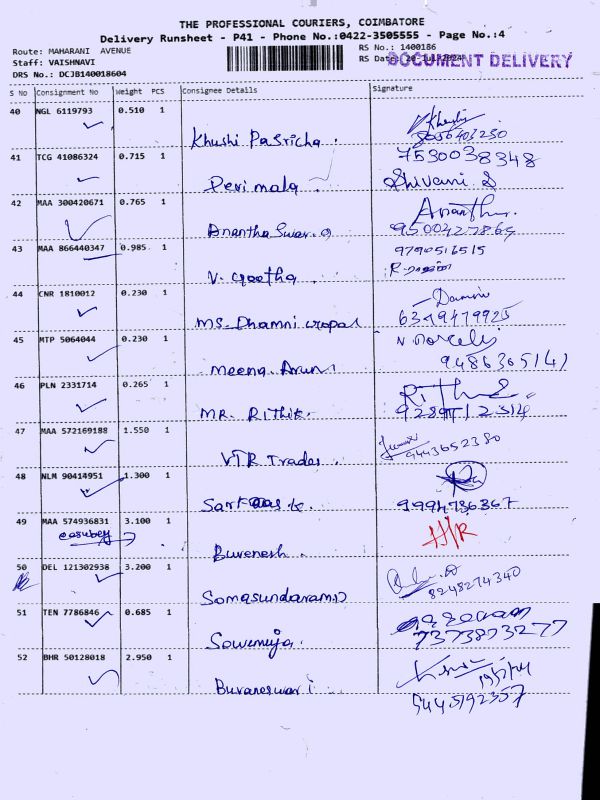 THE PROFESSIONAL COURIERS, COIMBATORE
Delivery Runsheet - P41 - Phone No.:0422-3505555 - Page No.:4
Route: MAHARANI AVENUE
RS No.: 1400186
Staff: VAISHNAVI
RS Date: 20-Jul-2024
DOCUMENT DELIVERY
DRS No.: DCJB140018604
S No Consignment No Weight PCS Consignee Details Signature
40 NGL 6119793 0.510 1
Khushi Pasricha.
41 TCG 41086324 0.715 1
7530038348
Devi mala
Shivani S
42 MAA 300420671 0.765 1
Anantha Swar.a
43 MAA 866440347 0.985 1
9790516515
V. Geetha.
44 CNR 1810012 0.230 1
Ms. Dhamni Gopal
6349479925
45 MTP 5064044 0.230 1
Meena Arun.
9486305147
46 PLN 2331714 0.265 1
MR. Rithik.
47 MAA 572169188 1.550 1
9443652380
VTR Trades.
48 NLM 90414951 1.300 1
9994786367
49 MAA 574936831 3.100 1
Buvenesh.
50 DEL 121302938 3.200 1
8248274340
Somasundaram.D
51 TEN 7786846 0.685 1
Sowmiya.
7373873277
52 BHR 50128018 2.950 1
Buvaneswari.
9445192357